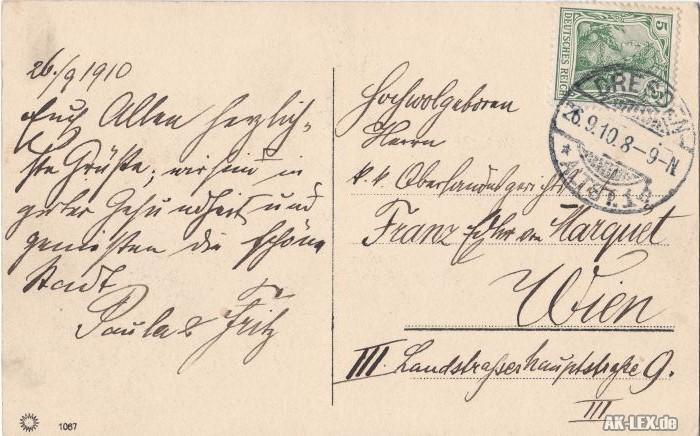 26./9 1910
Euch Allen herzlich-
ste Grüße; wir sind in
guter Gesundheit und
genießen die schöne
Stadt
Paula & Fritz
1067
5
DEUTSCHES REICH
DRESDEN
26.9.10.8-9-N
* ALTST. 1
Hochwolgeboren
Herrn
k. k. Oberlandesgerichts
Franz Frhr von Marquet
Wien
III. Landstraßerhauptstraße 9.
III
AK-LEX.de